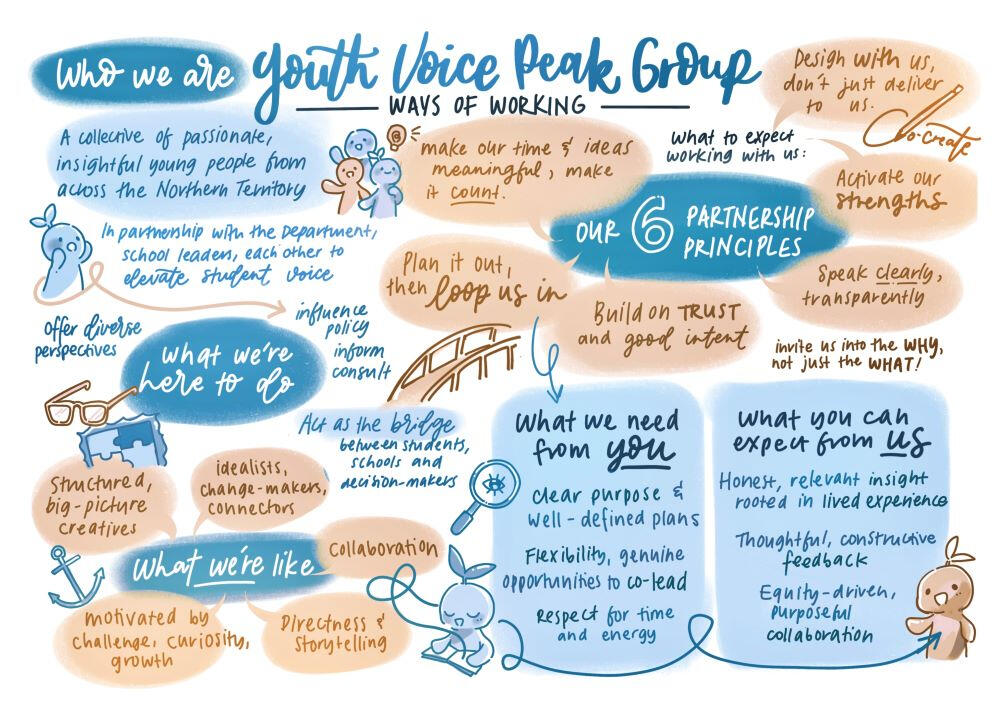 Who we are
Youth Voice Peak Group
WAYS OF WORKING
A collective of passionate,
insightful young people from
across the Northern Territory
In partnership with the Department,
school leaders, each other to
elevate student voice
make our time & ideas
meaningful, make
it count.
What to expect
working with us:
Design with us,
don't just deliver
to us.
Co-create
Activate our
strengths
OUR 6 PARTNERSHIP
PRINCIPLES
Plan it out,
then loop us in
Build on TRUST
and good intent
Speak clearly,
transparently
invite us into the WHY,
not just the WHAT!
Offer diverse
perspectives
What we're
here to do
influence
policy
inform
consult
Act as the bridge
between students,
schools and
decision-makers
Structured,
big-picture
creatives
idealists,
change-makers,
connectors
What we're like
Collaboration
motivated by
challenge, curiosity,
growth
Directness &
Storytelling
What we need
from you
clear purpose &
well-defined plans
Flexibility, genuine
opportunities to co-lead
Respect for time
and energy
What you can
expect from us
Honest, relevant insight
rooted in lived experience
Thoughtful, constructive
feedback
Equity-driven,
purposeful
collaboration